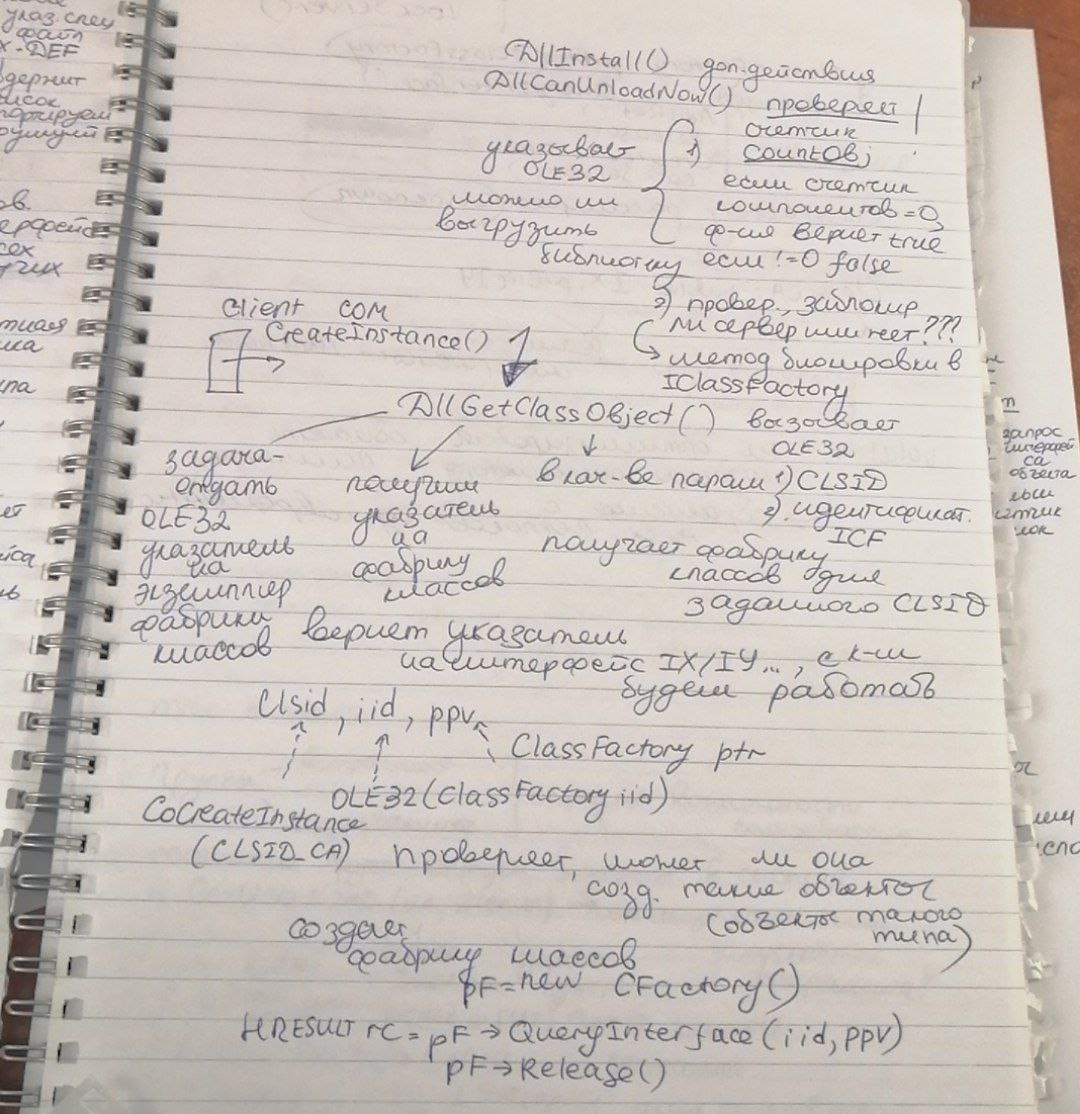 указ. спец
файл
x-DEF
DllInstall() доп. действия
DllCanUnloadNow() проверяет
счетчик
1) CountObj
указывает
OLE32
можно ли
выгрузить
библиотеку
если счетчик
компонентов = 0,
ф-ия вернет true
если != 0 false
2) провер., заблокир
ли сервер или нет???
метод блокировки в
IClassFactory
Client COM
CreateInstance() 1
DllGetClassObject() вызывает
OLE32
задача-
отдать
OLE32
указатель
на
экземпляр
фабрики
классов
получим
указатель
на
фабрику
классов
в кач-ве парам 1) CLSID
2). идентификат.
ICF
получает фабрику
классов для
заданного CLSID
вернет указатель
на интерфейс IX/IY..., с к-м
будем работать
Clsid, iid, ppv
ClassFactory ptr
OLE32(ClassFactory iid)
CoCreateInstance
(CLSID_CA) проверяет, может ли она
созд. такие объекты
(объекты такого
типа)
создает
фабрику классов
pF = new CFactory()
HRESULT rC = pF → QueryInterface(iid, ppv)
pF → Release()
запрос
интерфей
са
объекта